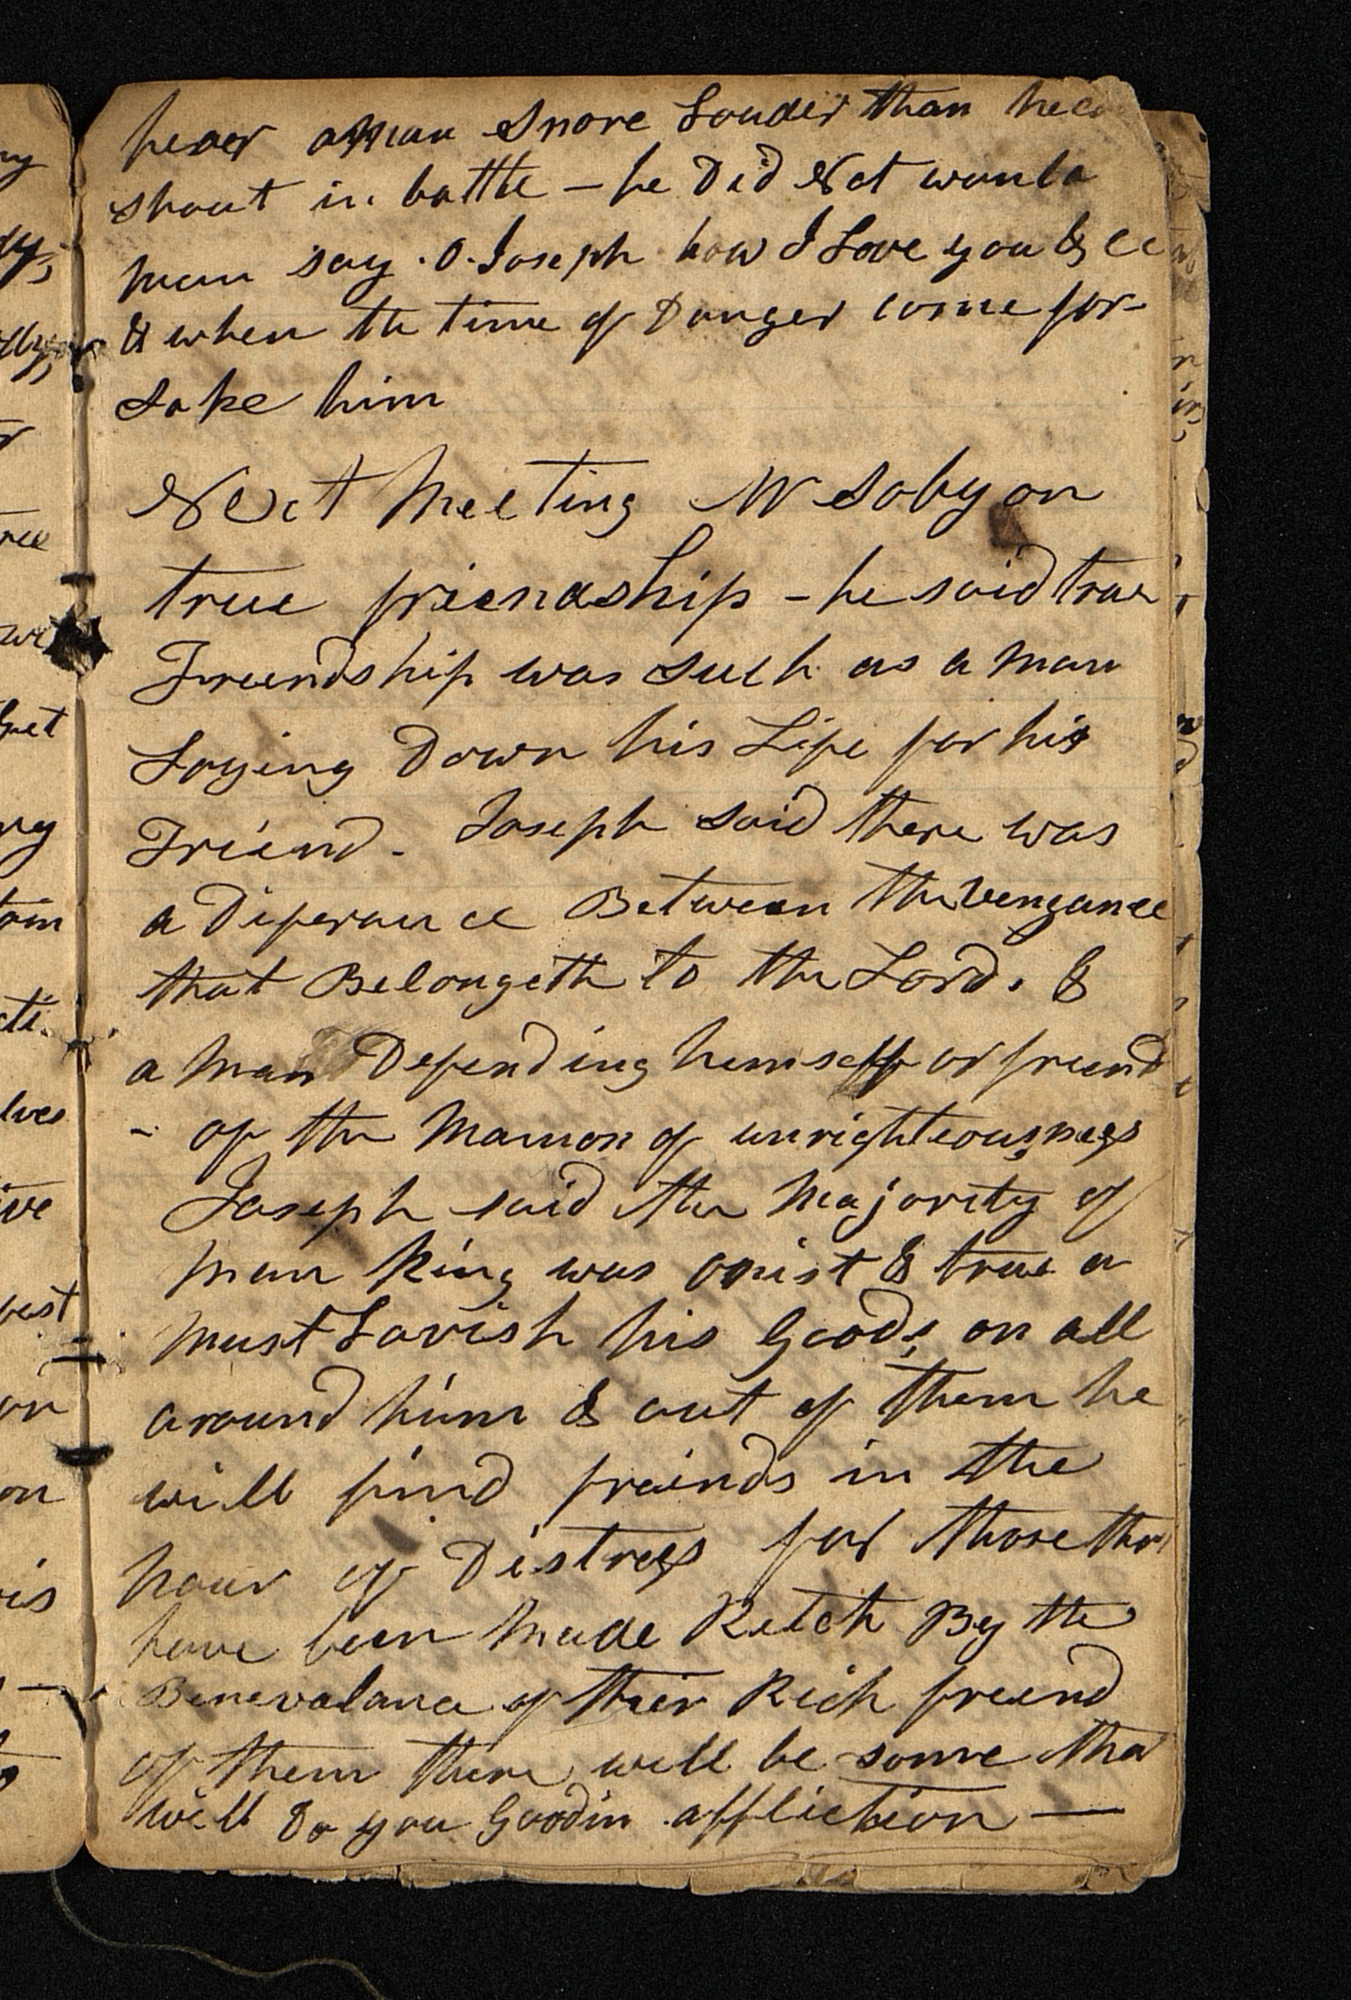 hear a man snore Louder than he
shout in battle — he Did Not want a
man say . O. Joseph how I Love you &c
& when the time of Danger come for-
sake him
Next Meeting W Soby on
true friendship - he said true
Freindship was such as a man
Laying Down his Life for his
Friend - Joseph said there was
a Diferance Between the vengance
that Belongeth to the Lord. &
a man Defending himself or freind
- of the Mamon of unrighteousness
Joseph said the Majority of
man king was onist & true a
must Lavish his Goods on all
around him & out of them he
will find freinds in the
hour of Distress for those tha
have been Made Reich By the
Benevalance of their Rich freind
of them there will be some tha
will do you Good in affliction —